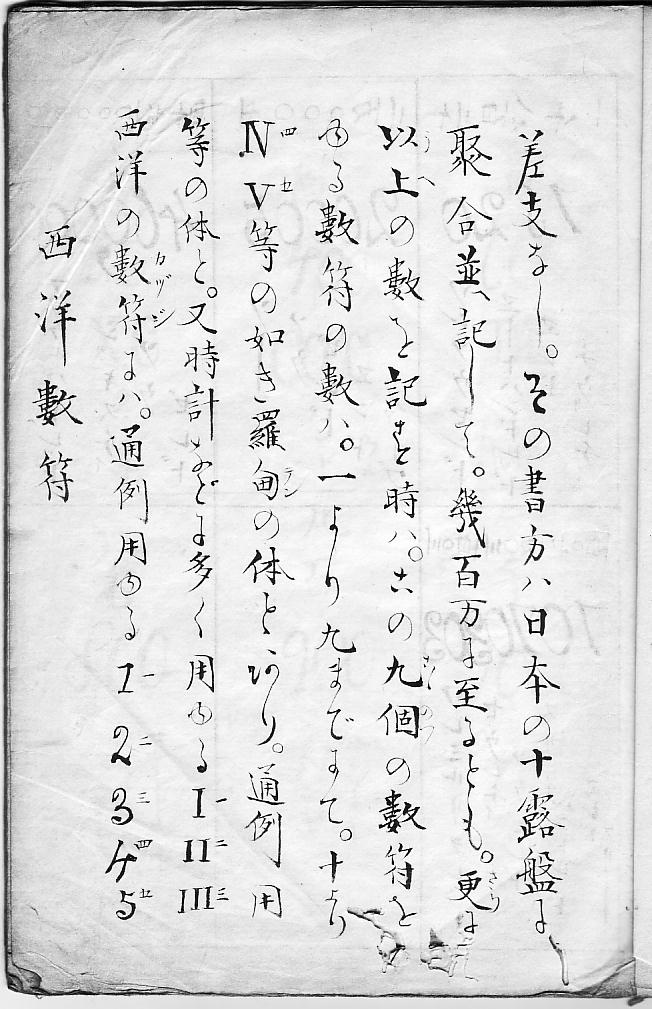 西洋數符
西洋の數符にハ。通例用ゐる 1 2 3 4 5
カヅジ 一 二 三 四 五
等の体と。又時計などに多く用ゐる I II III
一 二 三
IV V 等の如き羅甸の体とあり。通例用
四 五 テン
ゐる數符の數ハ。一より九までにて。十より
以上の數を記す時ハ。この九個の數符を
うへ
聚合並記して。幾百万に至るとも。更に
さら
差支なし。その書方ハ日本の十露盤に